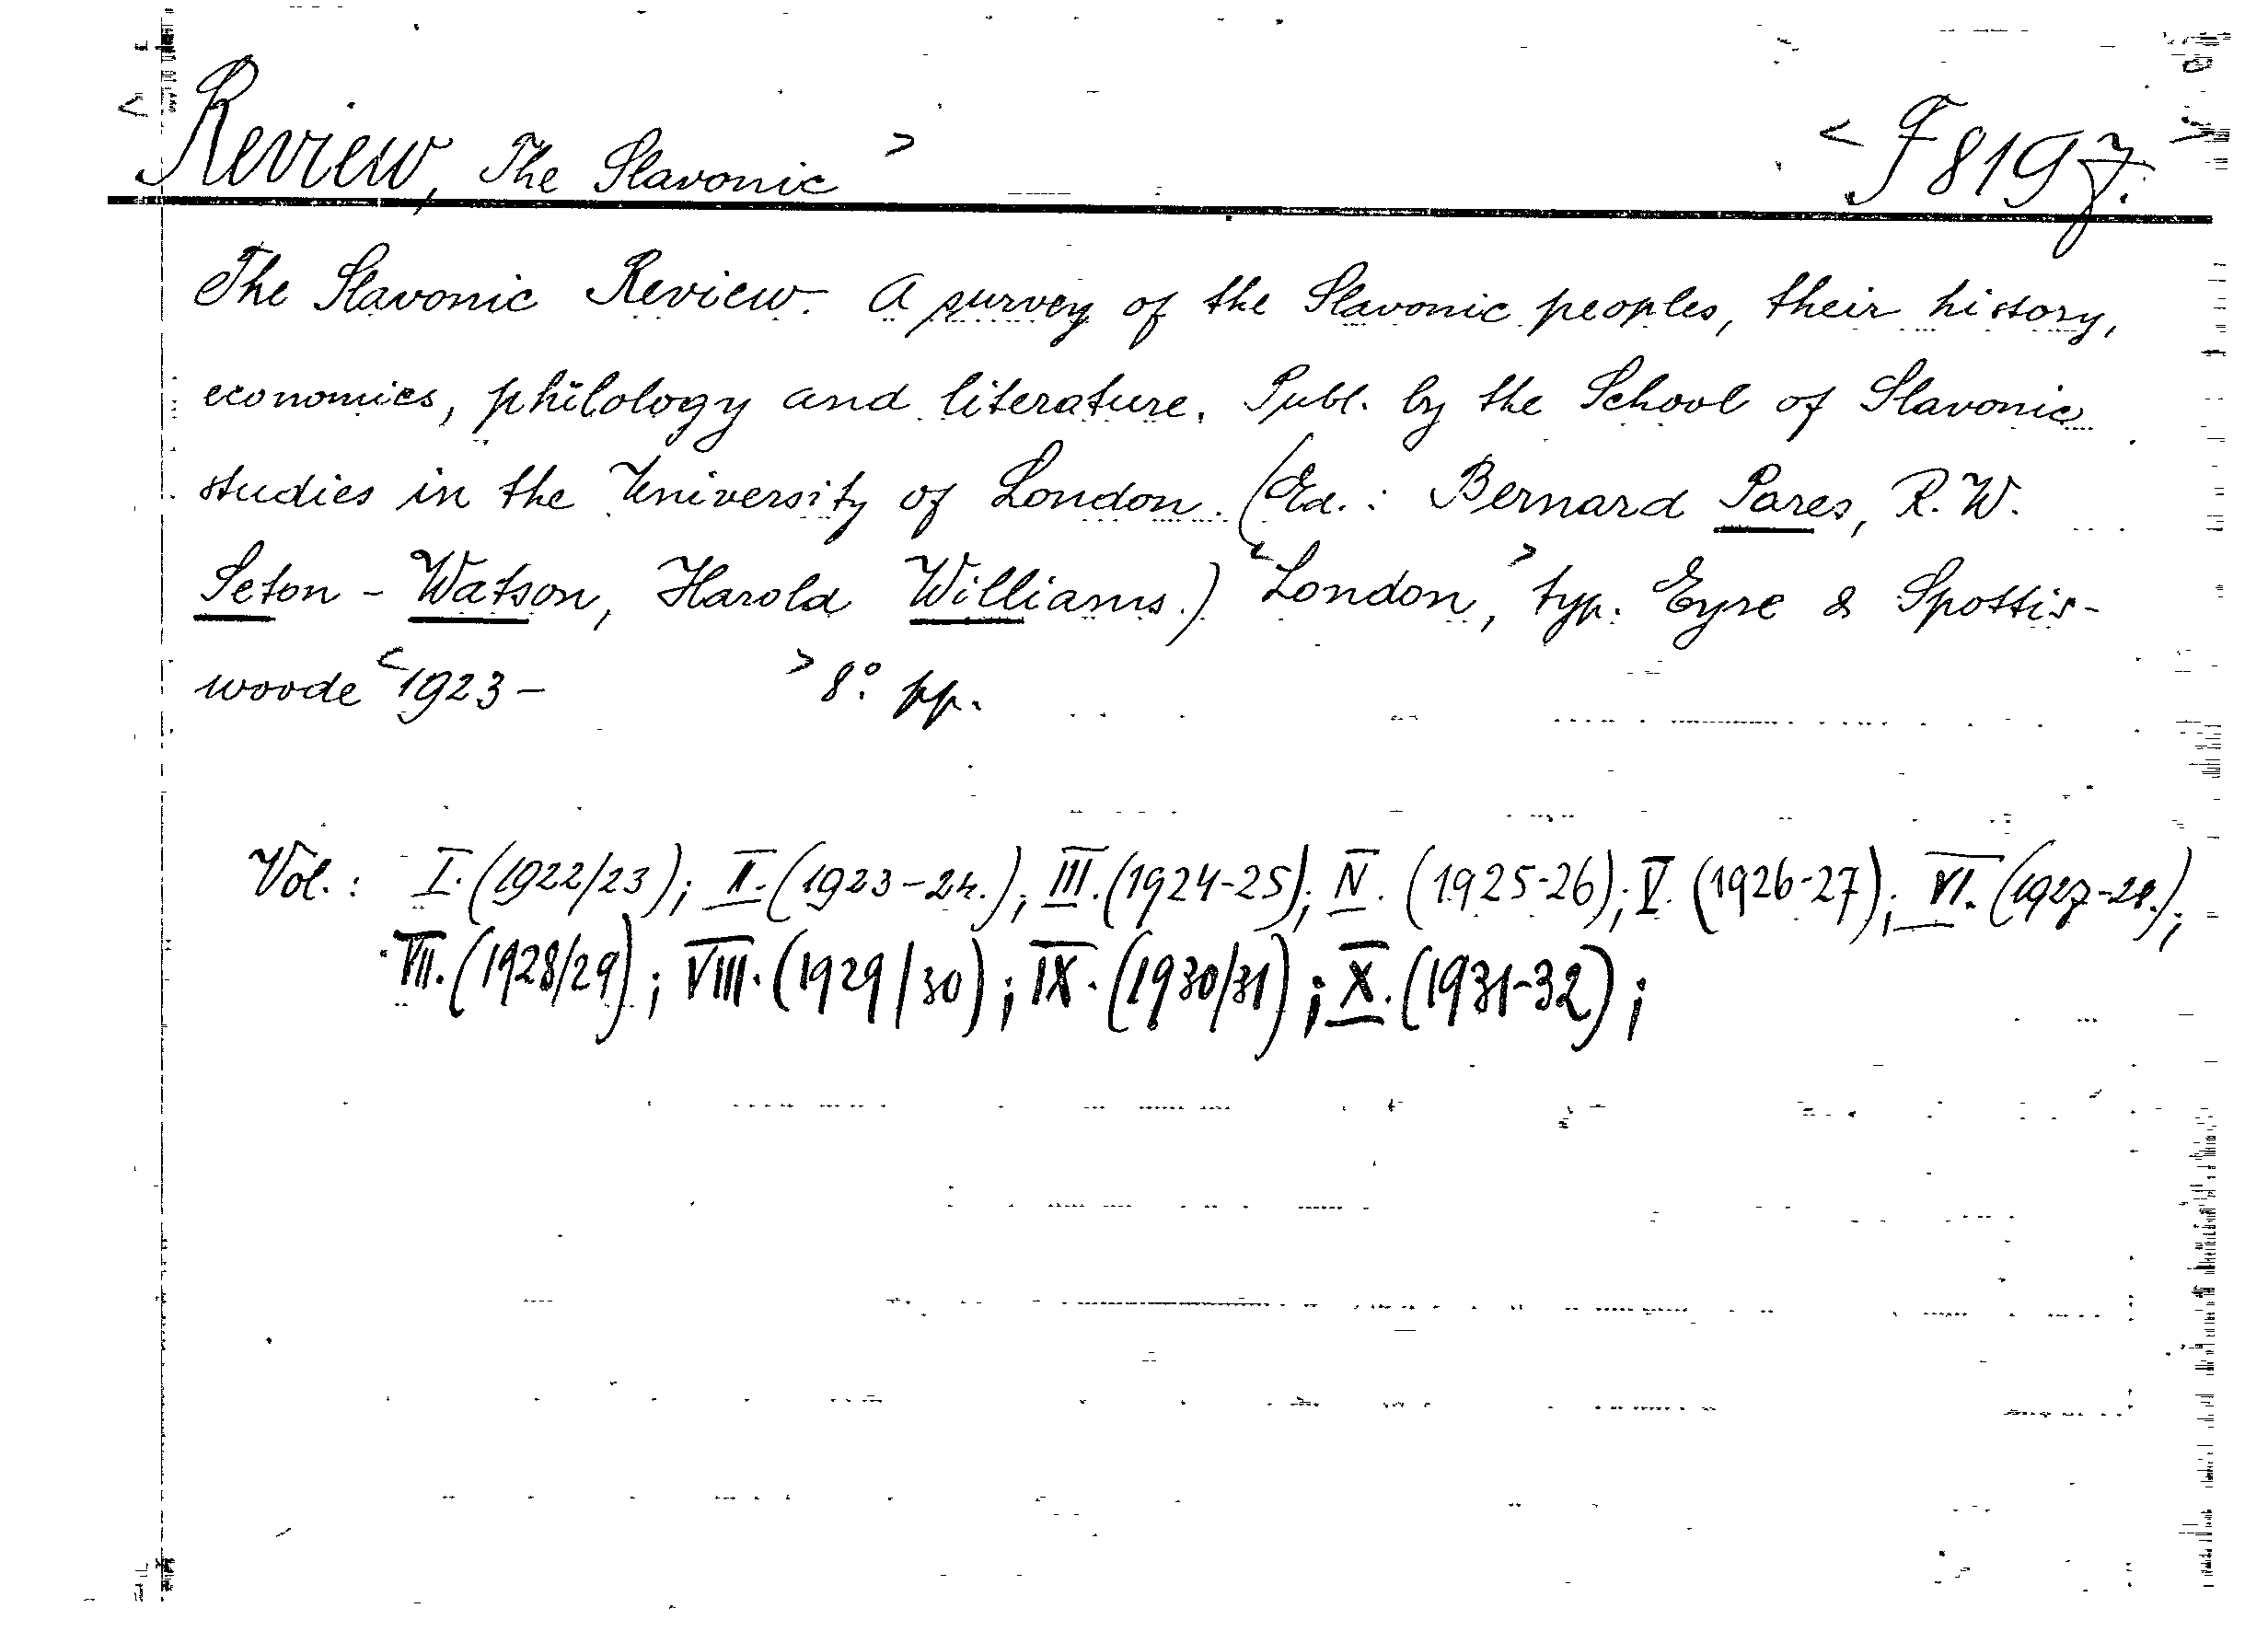 < Review, The Slavonic > < F 8197. >
The Slavonic Review. A survey of the Slavonic peoples, their history,
economics, philology and literature. Publ. by the School of Slavonic
studies in the University of London. (Ed.: Bernard Pares, R. W.
Seton - Watson, Harold Williams.) <London,> typ. Eyre & Spottis-
woode <1923- > 8° pp.
Vol.: I. (1922/23); II. (1923-24.); III. (1924-25); IV. (1925-26); V. (1926-27); VI. (1927-28.);
VII. (1928/29); VIII. (1929/30); IX. (1930/31); X. (1931-32);